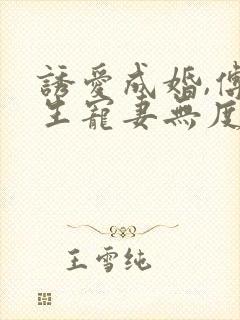 誘愛成婚,傅
生寵妻無度
王雪纯